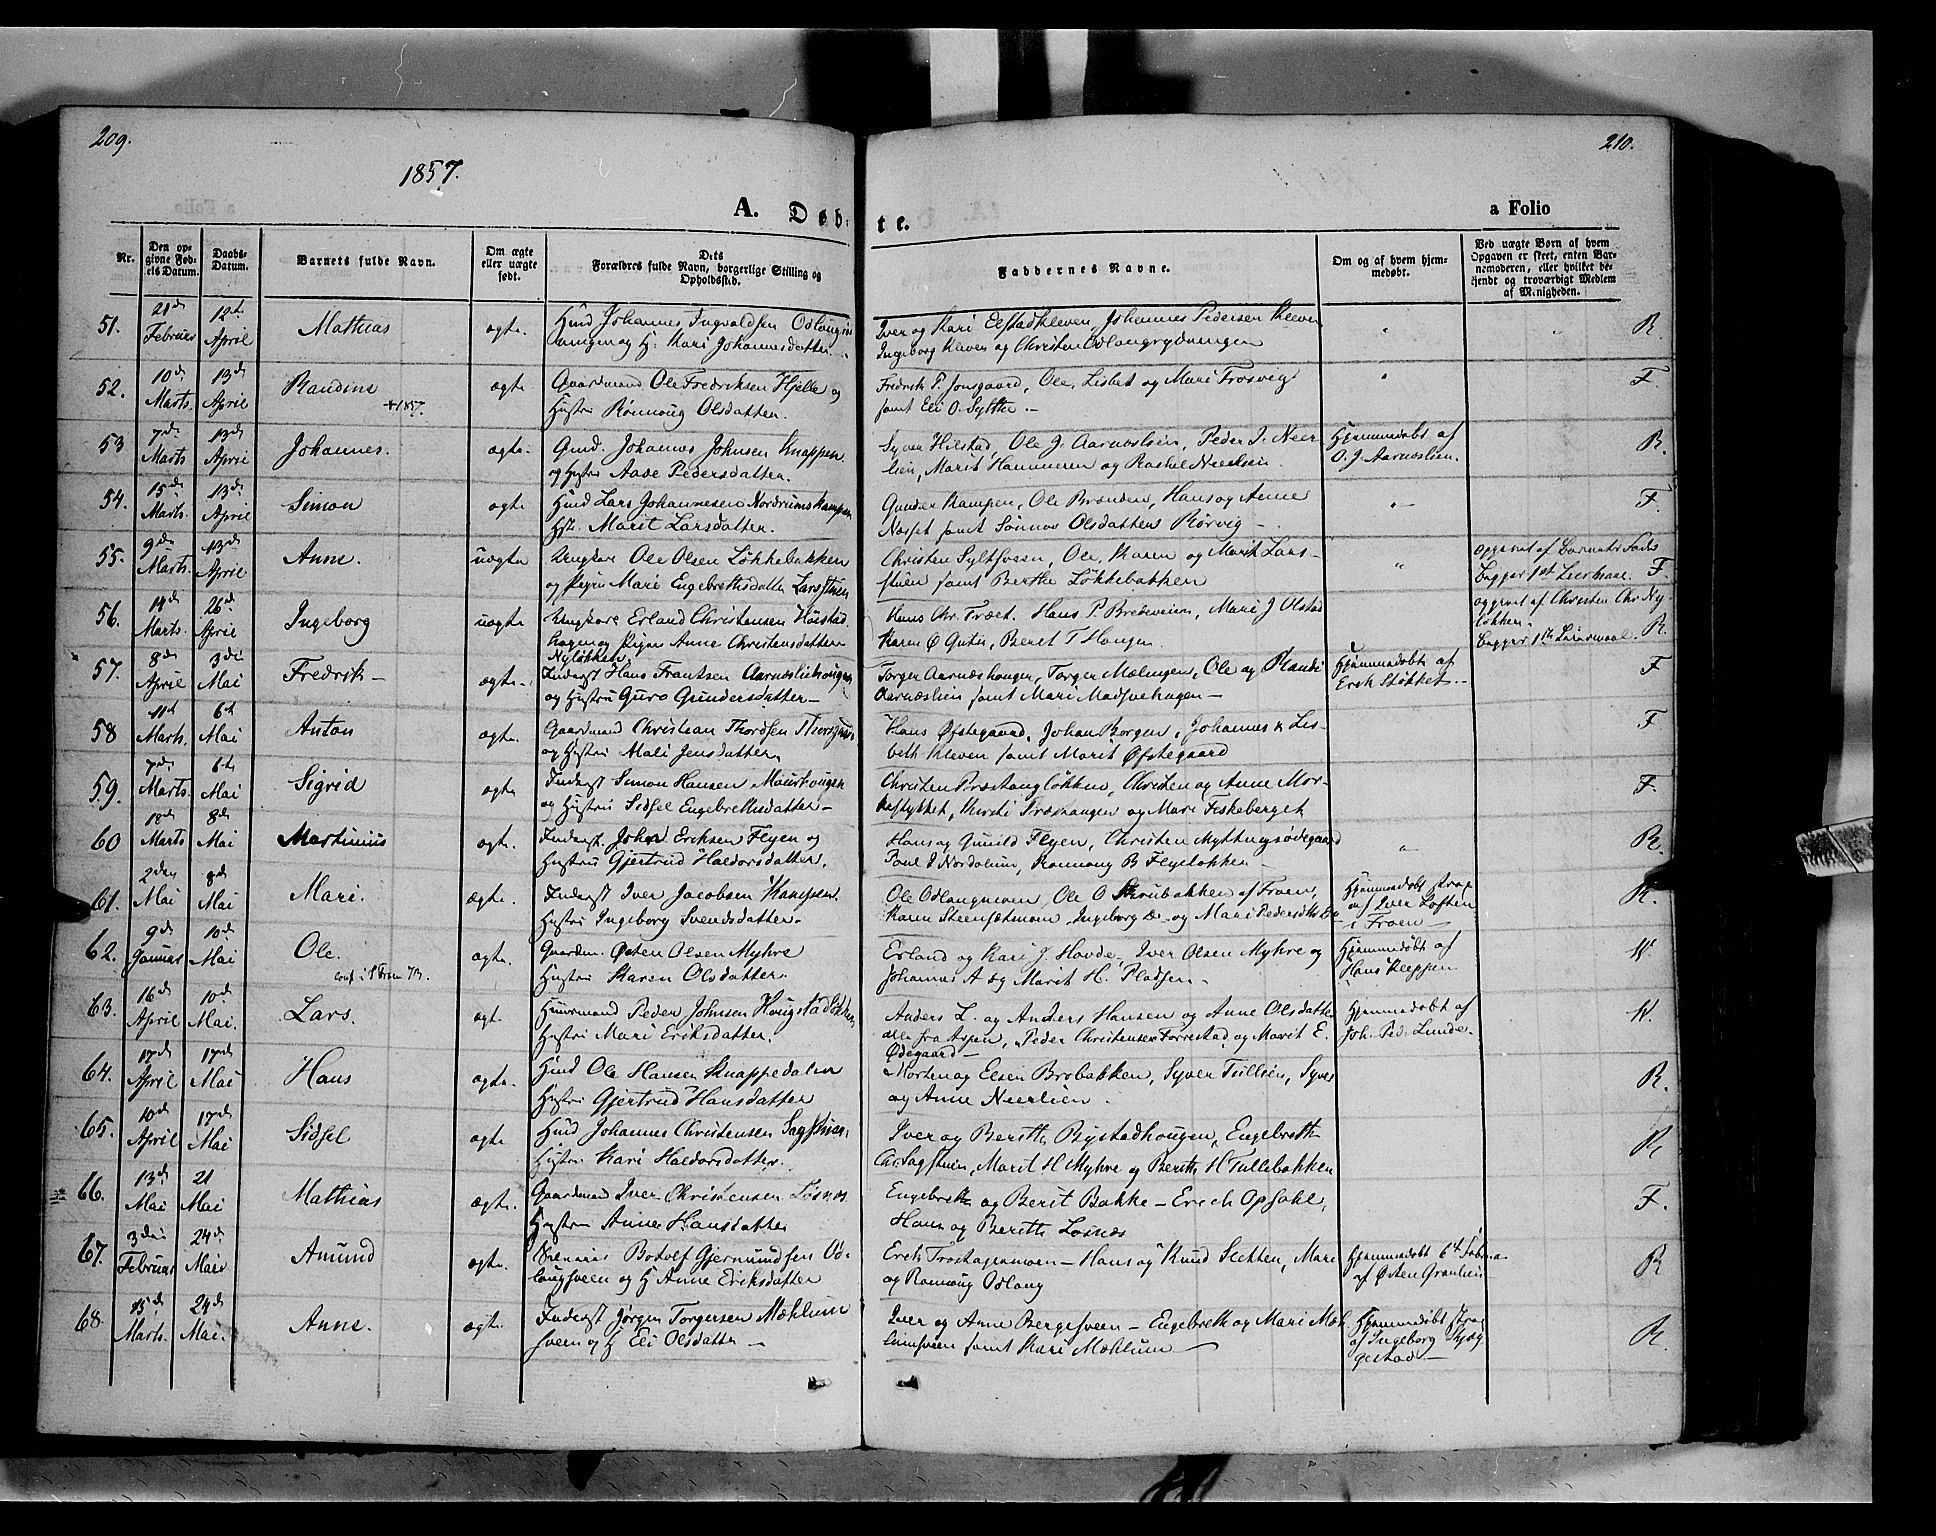 209.
210.
1857.
A. Døb-
te.
a Folio
Nr.
Den op-
givne Fød-
sels Datum.
Daabs-
Datum.
Barnets fulde Navn.
Om ægte
eller uægte
født.
Dets
Forældres fulde Navn, borgerlige Stilling og
Opholdssted.
Faddernes Navne.
Om og af hvem hjem-
medøbt.
Ved uægte Børn af hvem
Opgaven er skeet, enten Bar-
nemoderen, eller hvilket be-
kjendt og troværdigt Medlem
af Menigheden.
51.
21de Februar
12te April
Mathias
ægte
Hmd Johannes Ingvaldsen
og H: Kari Johannesdatter.
Iver og Kari Elstadkleven, Johannes Pedersen Kleven
Ingeborg Kleven og Christen Odlangrydningen
R
52.
10de Marts
13de April
Randine
+ 1857.
ægte
Gaardmand Ole Fredriksen Hjelle og
Hustru Rønnoug Olsdatter.
Fredrik P. Jonsgaard, Ole, Lisbet og Mari Trosvig
samt Eli O. Sylthe.
F.
53
7de Marts
13de April
Johannes.
ægte.
Gmd. Johannes Johnsen Knappen
og Hustru Aase Pedersdatter.
Syver Hilstad, Ole J. Aarnæslien, Peder I. Neer
lien, Marit Hammeren og Rachel Neerlien
Hjemmedøbt af
O. J. Aarnæslien.
R.
54.
15de Marts.
13de April
Simon
ægte
Hmd Lars Johannesen Nordrumskampen
Hst. Marit Larsdatter.
Gunder Kampen, Ole Brænden, Hans og Anne
Næsset samt Sønnov Olsdatter Rørvig
F.
55.
9de Marts
13de April
Anne.
uægte
Ungkar Ole Olsen Løkkebakken
og Pigen Mari Engebrethsdatter Larsstuen
Christen Syltesveen, Ole, Karen og Marit Lars-
stuen samt Berthe Løkkebakken
opgivet af Barnets Fader
Begges 1st Leiermaal. F.
56.
14de Marts.
26de April
Ingeborg
uægte
Ungkar Erland Christensen Høistad
hagen og Pigen Anne Christensdatter
Nyløkken
Hans Chr. Træet. Hans P. Brekveien, Mari J Ulstad
Karen Ø Guter, Beret T Hougen.
opgivet af Christen Chr. Ny
løkken.
Begges 1ste Leiermaal. R.
57.
8de April
3die Mai
Fredrik
ægte
Inderst Hans Frantsen Aarnæsliehougen
og Hustru Guro Gundersdatter
Torger Aarnæshougen, Torger Mælingen, Ole og Randi
Aarnæslien samt Mari Madsvehagen
Hjemmedøbt af
Erik Støkket.
F
58
11te Marts.
6te Mai
Anton
ægte.
Gaardmand Christian Thordsen
og Hustru Mali Jensdatter
Hans Øfstegaard, Johan Borgen, Johannes & Lis-
beth Kleven samt Marit Øfstegaard
F
59.
7de Marts.
6te Mai
Sigrid
ægte
Inderst Simon Hansen Maurhougen
og Hustru Sidsel Engebrethsdatter
Christen Præstangløkken, Christen og Anne Mor-
kestykket, Kirsti Præsthaugen og Mari Fiskeberget
F.
60
18de Marts
8de Mai
Martinius
ægte.
Inderst Johan Eriksen Flyen og
Hustru Gjertrud Haldorsdatter.
Hans og Gunild Flyen, Christen Myttingsødegaard
Poul I Nordalum, Rønnoug B Flyeløkken
R.
61.
2den Mai
8de Mai
Mari.
ægte.
Inderst Iver Jacobsen Kampen.
Hustru Ingeborg Svendsdatter.
Ole Odlangmoen, Ole O Skrubakken af Froen,
Karen Steensetmoen, Ingeborg og Mari Pedersdtr
Hjemmedøbt strax
af Iver Loften
i Froen
R.
62.
9de Januar
10de Mai
Ole.
conf. i S Fron 73.
ægte.
Gaardm. Østen Olsen Myhre
Hustru Karen Olsdatter.
Erland og Kari J. Hovde, Iver Olsen Myhre og
Johannes A og Marit H. Pladsen.
Hjemmedøbt af
Hans Kleppen
K
63.
16de April
10de Mai.
Lars.
ægt.
Huusmand Peder Johnsen Hougstadløkken
Hustru Mari Eriksdatter.
Anders L. og Anders Hansen og Anne Olsdatter
alle fra Aspen, Peder Christensen Forrestad og Marit E.
Ødegaard
Hjemmedøbt af
Joh. Ped. Lunde
K.
64.
17de April
17de Mai
Hans
ægte.
Hmd Ole Hansen Knappedalen
Hustru Gjertrud Hansdatter
Morten og Elsen Brobakken, Syver Tullien, Syver
og Anne Neerlien.
R.
65.
10de April
17de Mai
Sidsel
ægte
Hmd Johannes Christensen Sagstuen.
Hustru Kari Haldorsdatter.
Iver og Berith Bystadhougen, Engebreth
Chr. Sagstuen, Marit H Myhre og Berith H Tullebakken
R
66.
13de Mai
21 Mai
Mathias
ægte.
Gaardmand Iver Christensen Losnes
Hustru Anne Hansdatter
Engebreth og Berit Bakke – Erich Opsahl,
Hans og Berith Losnæs
F.
67.
3die Februar
24de Mai
Amund
ægte.
Bodolf Gjermundsen Od-
langsveen og H Anne Eriksdatter
Erich Trostagermoen – Hans og Knud Sletten, Mari
og Rønnoug Odlang
Hjemmedøbt 6te Februar
af Østen Granlien
R
68.
15de Marts.
24de Mai.
Anne.
ægte.
Inderst Jørgen Torgersen Mæhlum
sveen og H Eli Olsdatter
Iver og Anne Bergesveen – Engebreth og Mari Mæh
lumsveen samt Kari Mæhlum
Hjemmedøbt strax
af Ingeborg Skjæg
gestad
R.